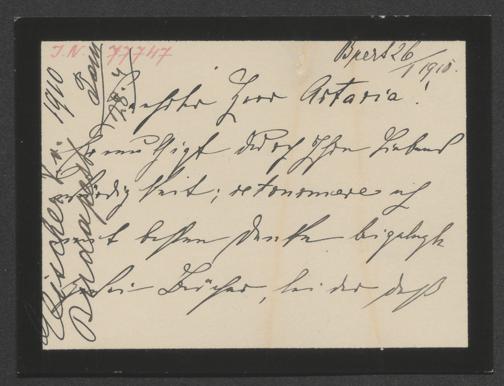 I.N. 77747
Bpest 26/1 1910.
geehrter Herr Artaria!
Ermuthigt durch Ihre Liebens
würdigkeit; retourniere ich
mit besten Danke beigelegte
zwei Bücher, bei der daß
Fischer K. v. 1910
Budapest
28.4